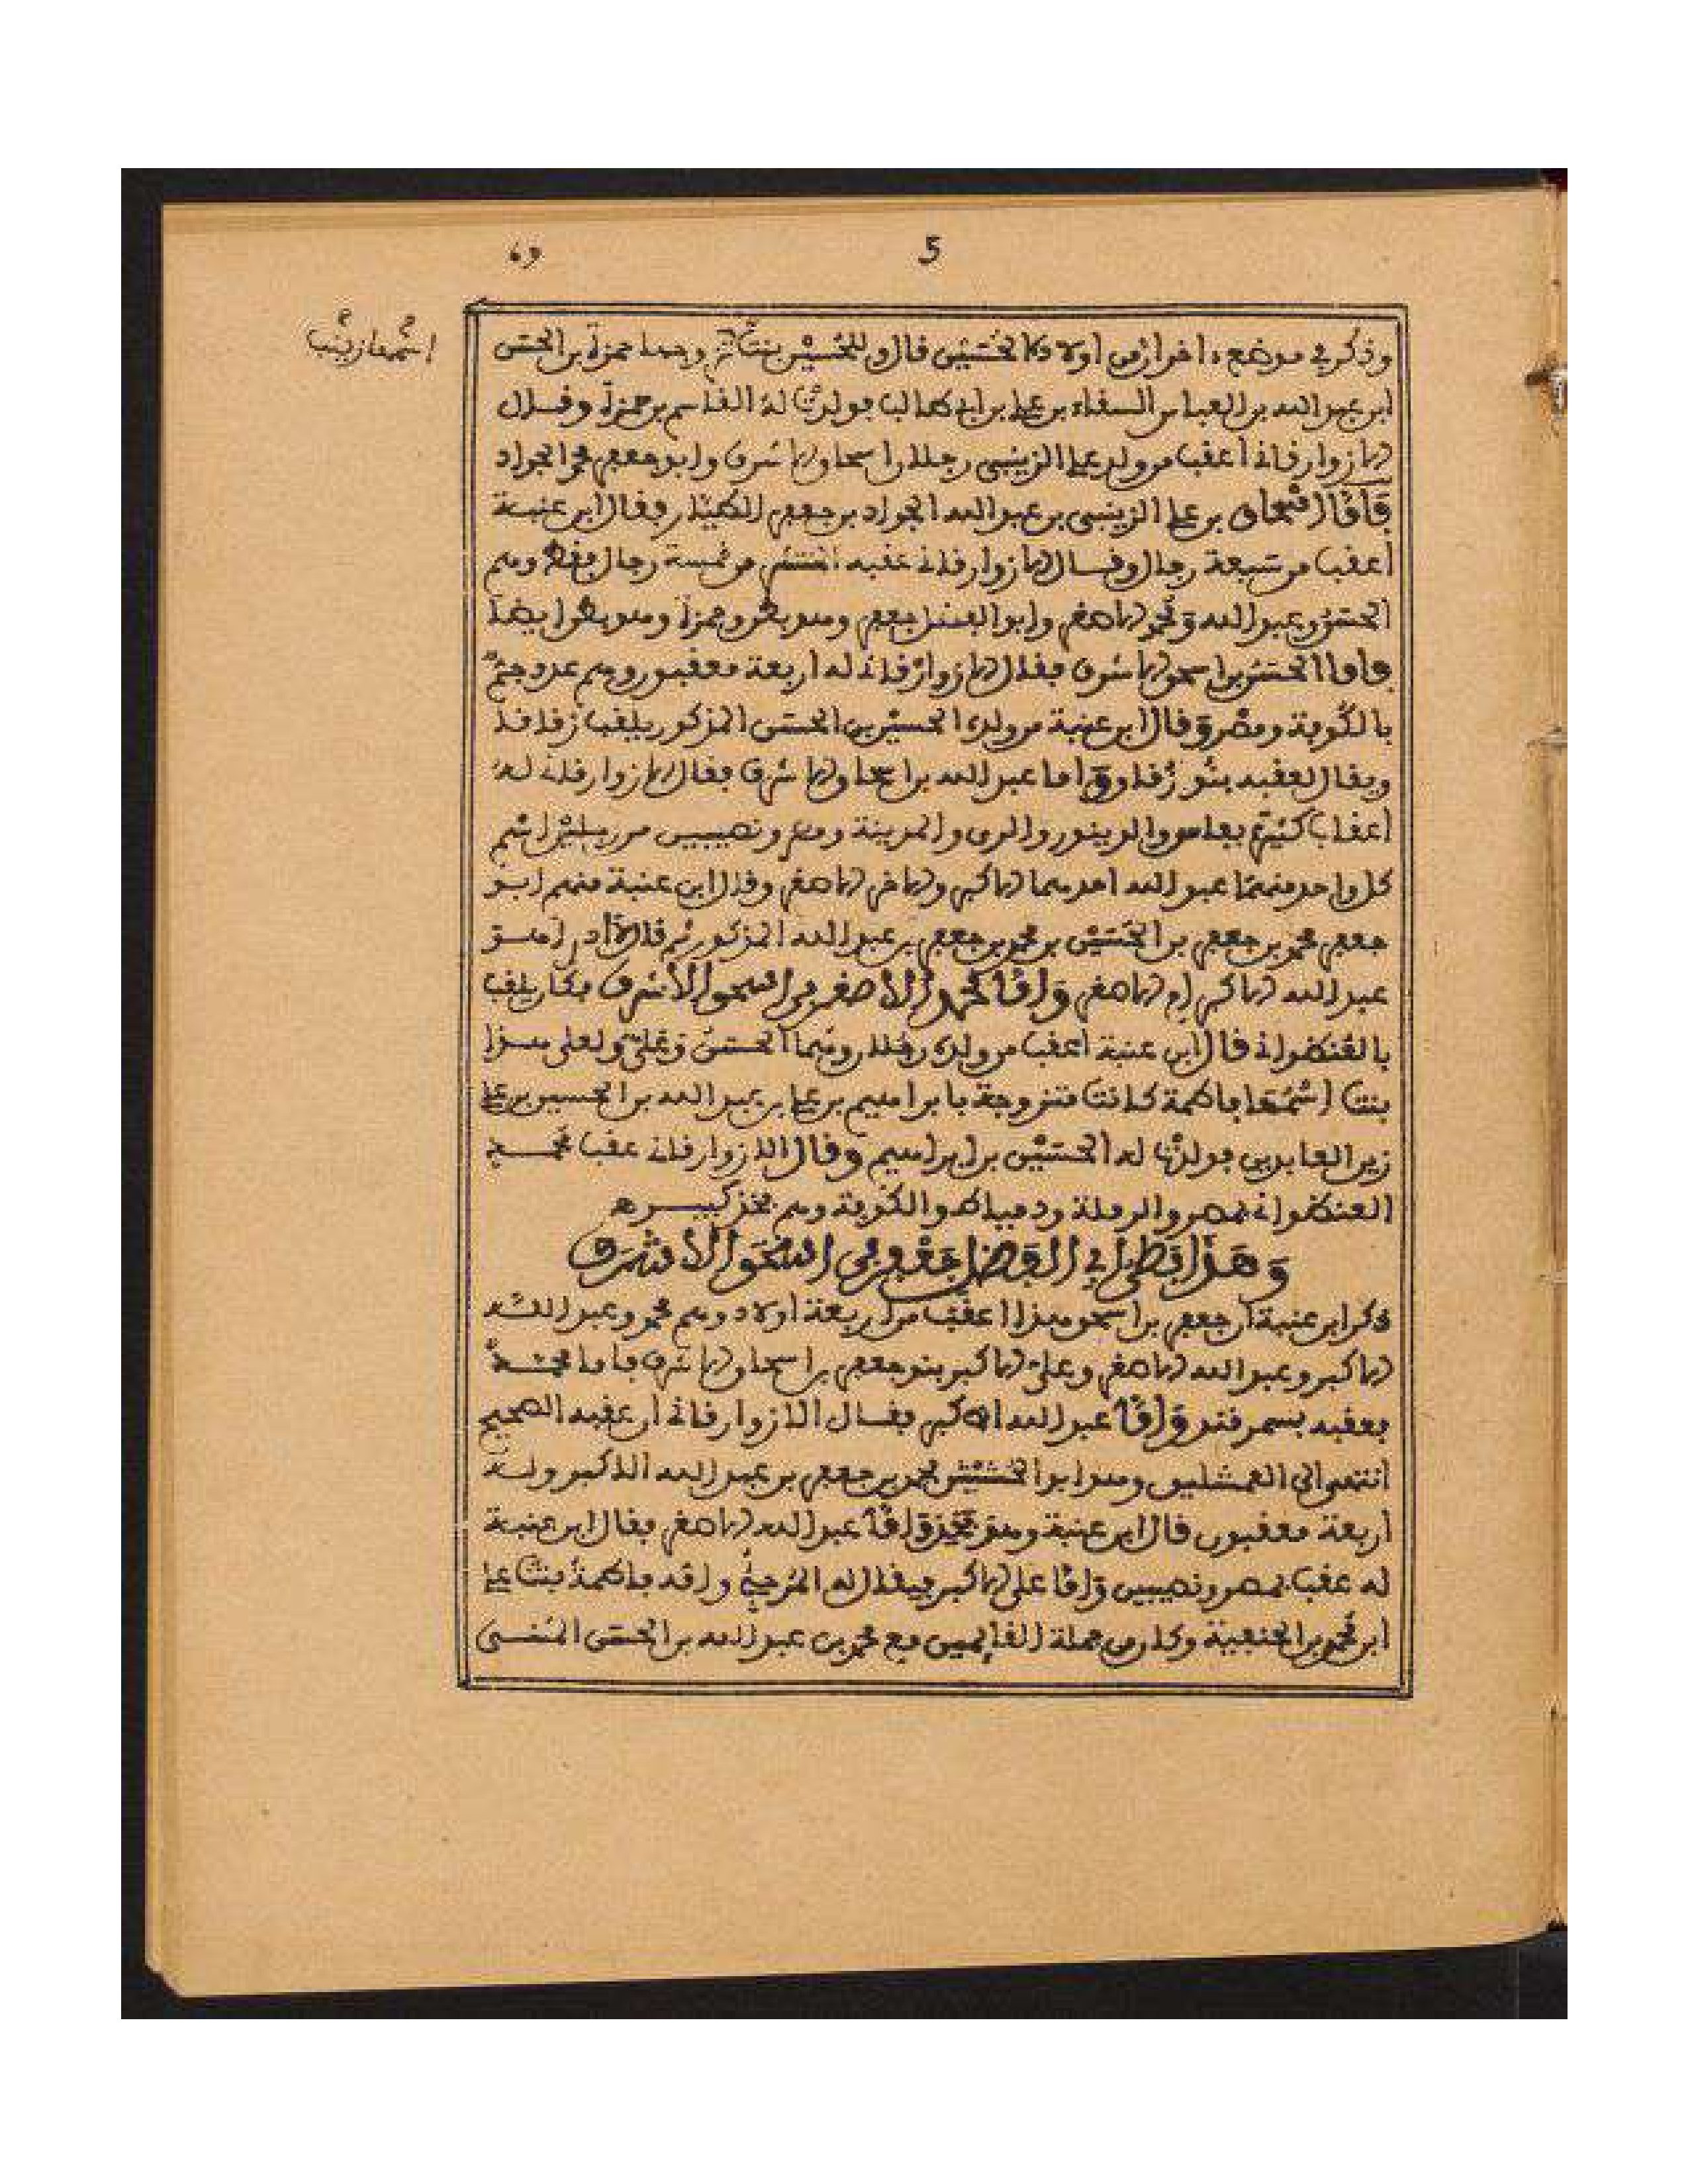 5
69
وذكر في موضع ءاخر أن من أولاد الحسين قال وللحسين بنت تزوجها حمزة بن الحسن
اسمها زينب
ابن عبد الله بن العباس السقاء بن علي بن أبي طالب فولدت له القاسم بن حمزة وقال
الازوارقاني أعقب من ولد علي الزينبي رجلان إسحاق الأشرف وأبو جعفر محمد الجواد
وأما إسحاق بن علي الزينبي بن عبد الله الجواد بن جعفر الطيار فقال ابن عنبة
أعقب من سبعة رجال وقال الازوارقاني عقبه انتشر من خمسة رجال فقط وهم
الحسن وعبد الله ومحمد الأصغر وأبو الفضل جعفر وحمزة
فأما الحسن بن إسحق الأشرف فقال الازوارقاني له أربعة معقبون وهم عدد جم
بالكوفة ومصر وقال ابن عنبة من ولده الحسين بن الحسن المذكور يلقب زقاقا
ويقال لعقبه بنو زقاق وأما عبد الله بن إسحاق الأشرف فقال الازوارقاني له
أعقاب كثيرة بفاس والدينور والري والمدينة ومصر ونصيبين من رجلين اسم
كل واحد منهما عبد الله أحدهما الأكبر والآخر الأصغر وقال ابن عنبة منهم أبو
جعفر محمد بن جعفر بن الحسين بن محمد بن جعفر بن عبد الله المذكور ثم قال لا أدر أهو
عبد الله الأكبر أم الأصغر وأما محمد الأصغر بن إسحق الأشرف فكان يلقب
بالعنطواني قال ابن عنبة أعقب من ولده رجلان وهما الحسن وعلي ولعلي هذا
بنت اسمها فاطمة كانت متزوجة بابراهيم بن علي بن عبيد الله بن الحسين بن علي
زين العابدين فولدت له الحسين بن إبراهيم وقال الازوارقاني عقب محمد
العنطواني بمصر والرملة ودمياط والكوفة وهم فخذ كبيره
وهذا فصل أبي الفضل جعفر بن إسحق الأشرف
ذكر ابن عنبة أن جعفر بن إسحق هذا أعقب من أربعة أولاد وهم محمد وعبد الله
الأكبر وعبد الله الأصغر وعلي الأكبر بنو جعفر بن إسحاق الأشرف فأما محمد
فعقبه بسمرقند وأما عبد الله الأكبر فقال الازوارقاني أن عقبه الصحيح
انتهى الى العمشليق وهو أبو الحسين محمد بن جعفر بن عبد الله الاكبر وله
أربعة معقبون قال ابن عنبة وهو فخذ وأما عبد الله الأصغر فقال ابن عنبة
له عقب بمصر ونصيبين وأما علي الأكبر فيقال له المرجي وأمه فاطمة بنت علي
ابن محمد بن الحنفية وكان من جملة القائمين مع محمد بن عبد الله بن الحسن المثنى